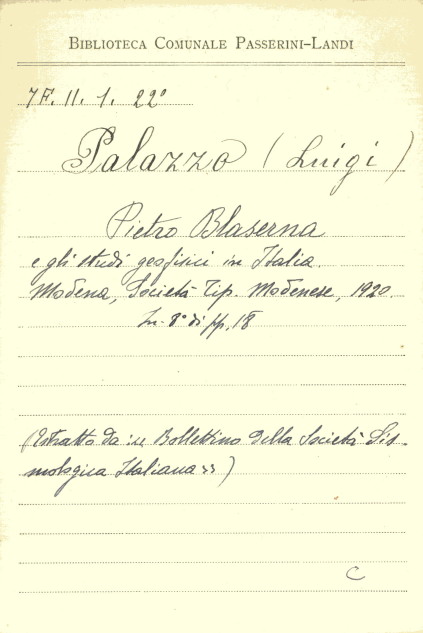 BIBLIOTECA COMUNALE PASSERINI-LANDI
7F. II. 1. 22º
Palazzo (Luigi)
Pietro Blaserna
e gli studi geofisici in Italia.
Modena, Società Tip. Modenese, 1920.
In-8º di pp. 18
(Estratto da: « Bollettino della Società Sis-
mologica Italiana »)
C